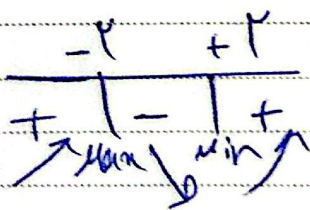 -۲ +۲
+ - +
max min